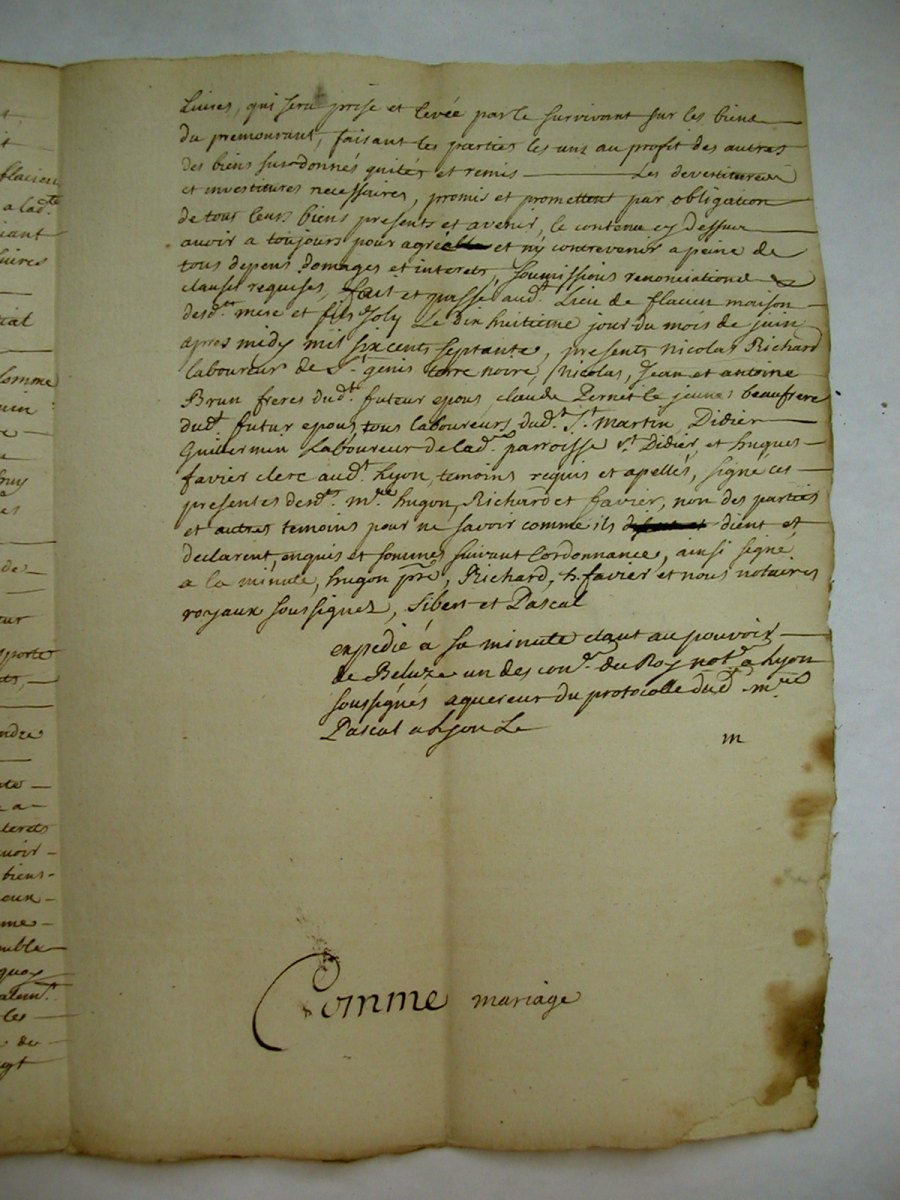 Livres, qui sera prise et levée par le survivant sur les biens
du premourant, faisant les parties les uns au profit des autres
des biens susdonnés quités et remis — Les devestitures
et investitures necessaires, promis et promettent par obligation
de tous leurs biens presents et avenir, le contenu cy dessus
avoir a toujours pour agreable et ny contrevenir a peine de
tous depens domages et interets, soumissions renonciations
clauses requises, fait et passé aud.t Lieu de flacieu maison
desd.ts mere et fils Joly Le dix huitieme jour du mois de juin
apres midy mil six cents septante, presents nicolas Richard
laboureur de S.t genis terre noire, Nicolas, Jean et antoine
Brun freres dud.t futeur epous, claude Pernet le jeune beaufrere
dud.t futur epous, tous laboureurs dud.t S.t Martin, Didier
Guillermin Laboureur de lad.e parroisse S.t Didier, et hugues
favier clerc aud.t Lyon, temoins requis et apellés, signé ces
presentes desd.ts m.re hugon, Richard et favier, non des parties
et autres temoins pour ne savoir comme ils dient et
declarent, enquis et sommés suivant Lordonnance, ainsi signé
a la minute, hugon p̃re, Richard, h. favier et nous notaires
royaux soussignez, Sibert et Pascal
expedié á sa minute etant au pouvoir
de Beluze un des con.rs du Roy not.re a Lyon
soussignés aquereur du protocolle dud.t m.re
Pascal a Lyon Le
m
Comme mariage
flacieu
a lad.te
tial
Comme
de
porte
terets
biens
me
quoy
les